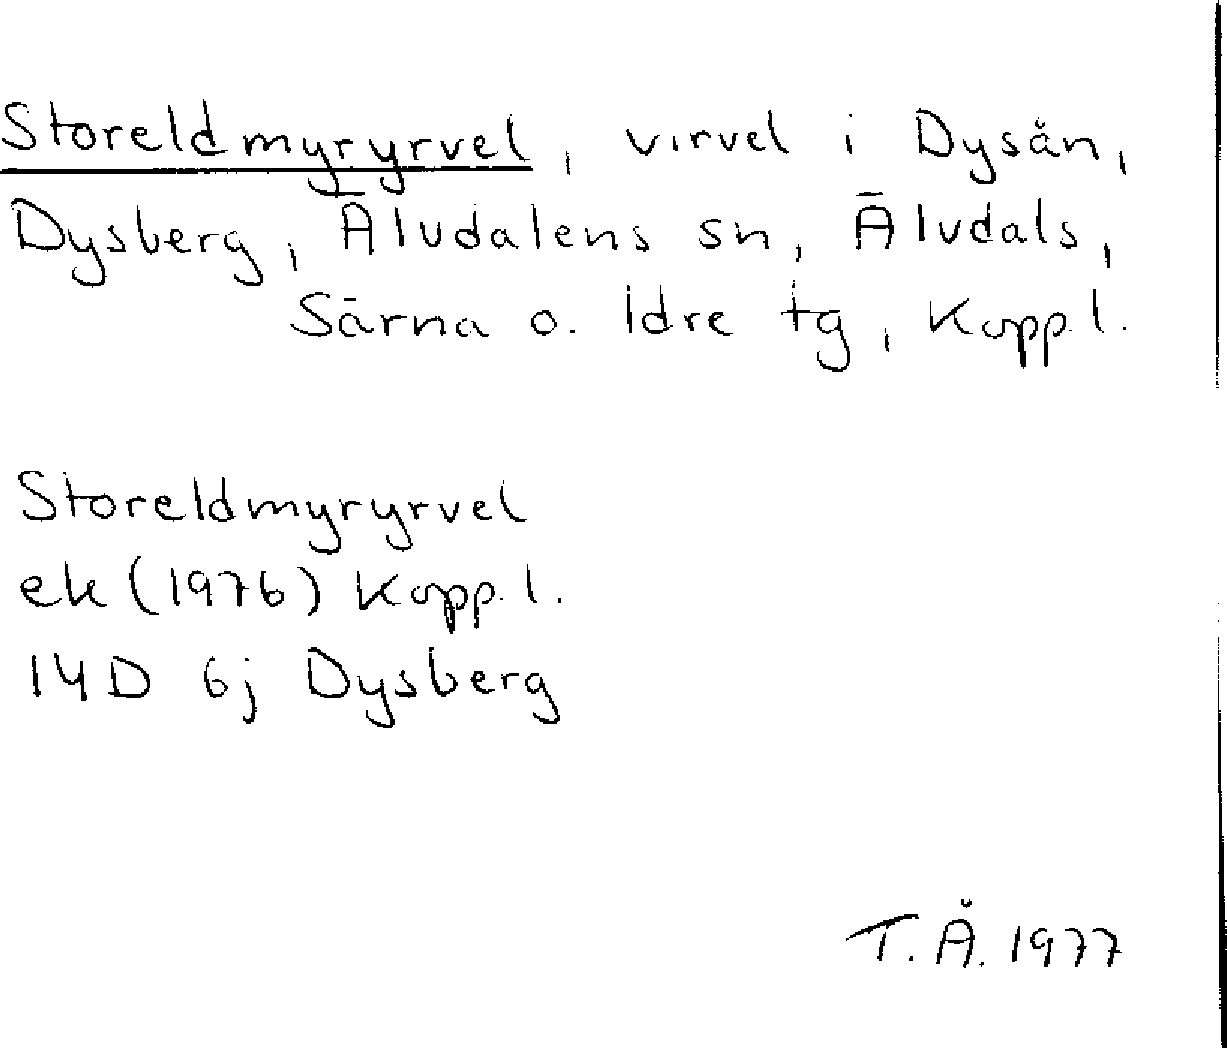 Storeldmyryrvel, virvel i Dysån,
Dysberg, Älvdalens sn, Älvdals,
Särna o. Idre tg, Kopp.l.
Storeldmyryrvel
ek (1976) Kopp.l.
14D 6j Dysberg
T.Å. 1977